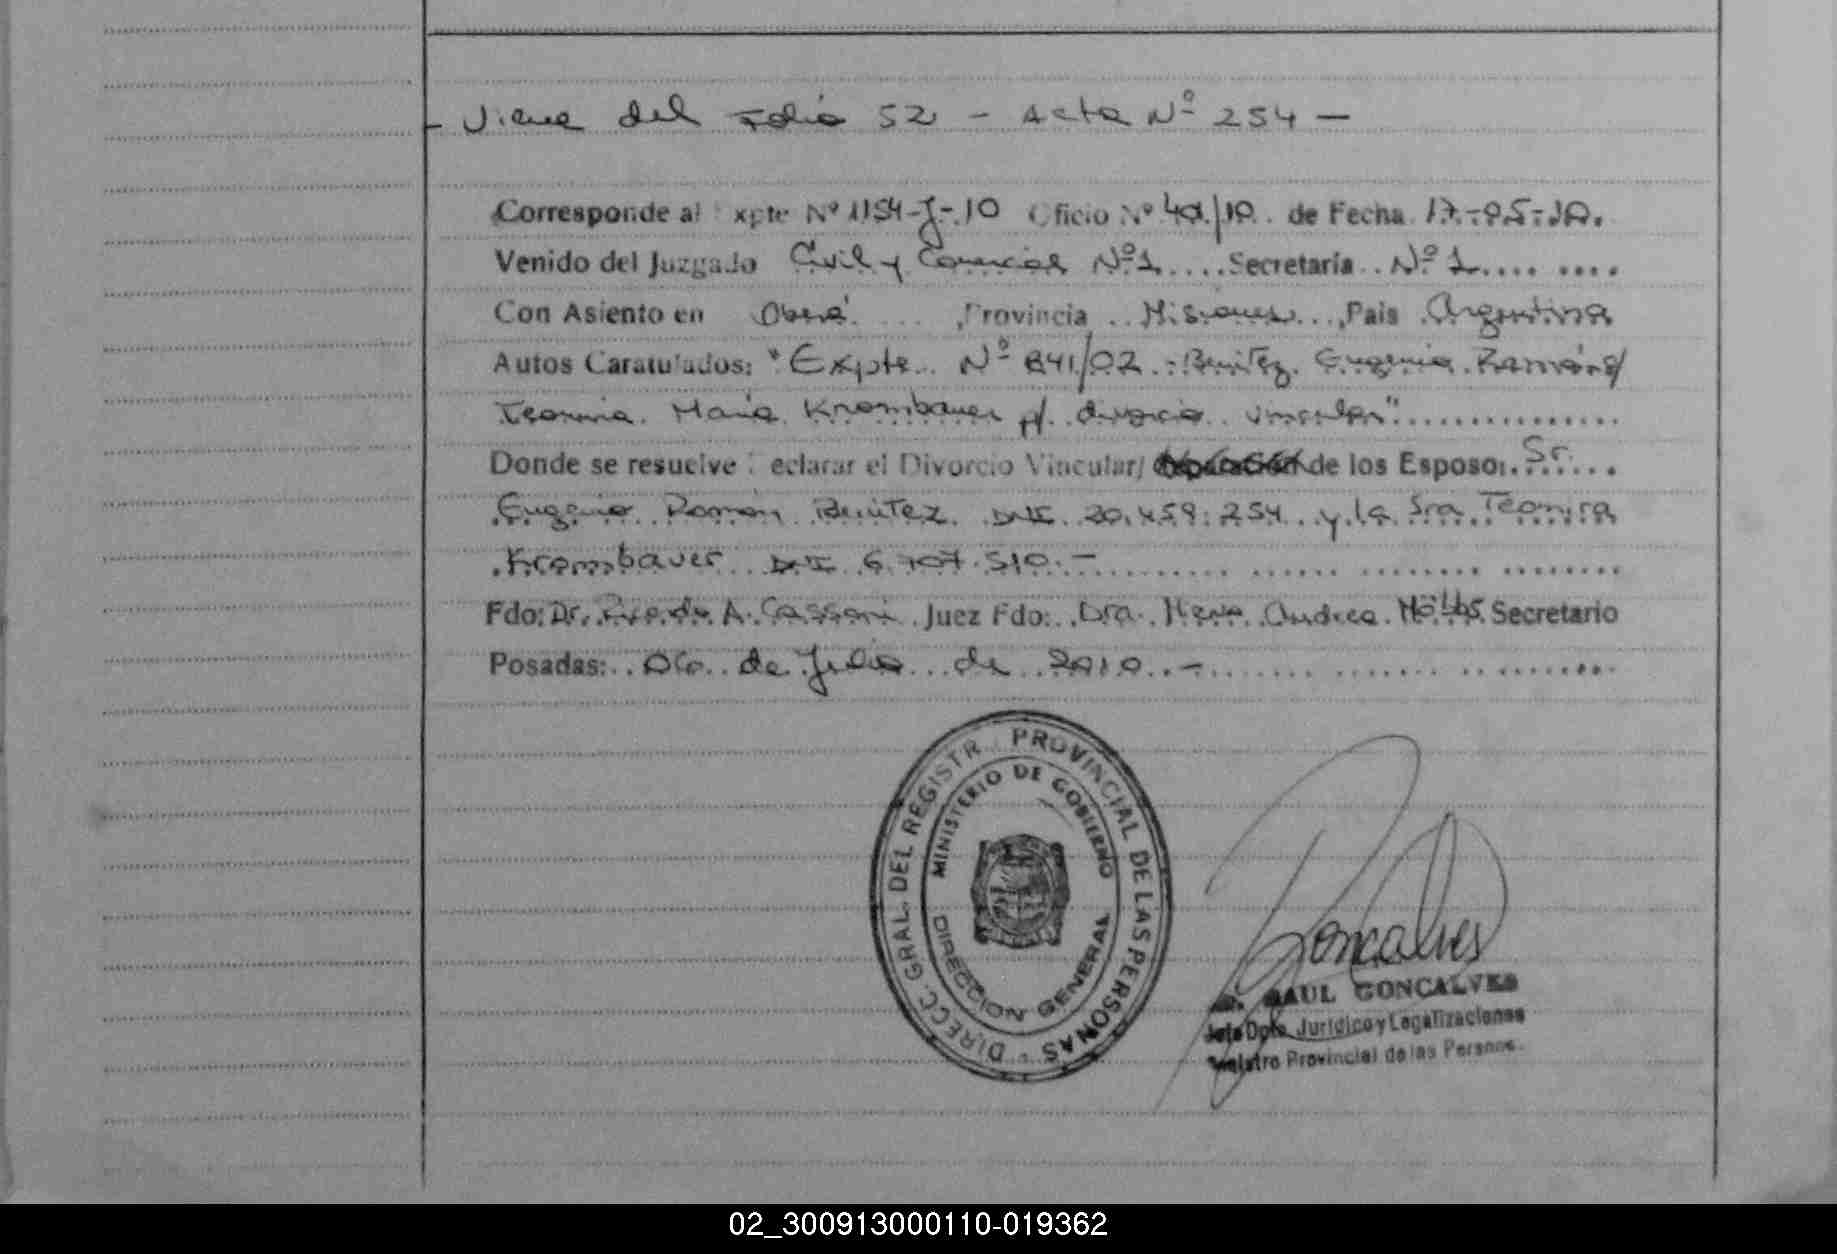 - Viene del Folio 52 - Acta Nº 254 -
Corresponde al Expte Nº 1154-J-10 Oficio Nº 401/10 de Fecha 17-05-10.
Venido del Juzgado Civil y Comercial Nº 1 Secretaría Nº 1
Con Asiento en Oberá, Provincia Misiones, País Argentina
Autos Caratulados: "Expte Nº 841/02 - Benitez Eugenio Ramón y
Teonira Maria Krombauer p/ divorcio vincular"
Donde se resuelve Declarar el Divorcio Vincular/ de los Esposos Sr.
Eugenio Ramón Benitez DNI 20.459.254 y la Sra Teonira
Krombauer DNI 6.707.510.-
Fdo: Dr. A. Cassoni Juez Fdo: Dra. Andrea Secretario
Posadas: 06 de Julio de 2010 -
DIRECC. GRAL. DEL REGISTR PROVINCIAL DE LAS PERSONAS
MINISTERIO DE GOBIERNO
DIRECCION GENERAL
Goncalves
RAUL GONCALVES
Jefe Dpto. Jurídico y Legalizaciones
Registro Provincial de las Personas
02_300913000110-019362